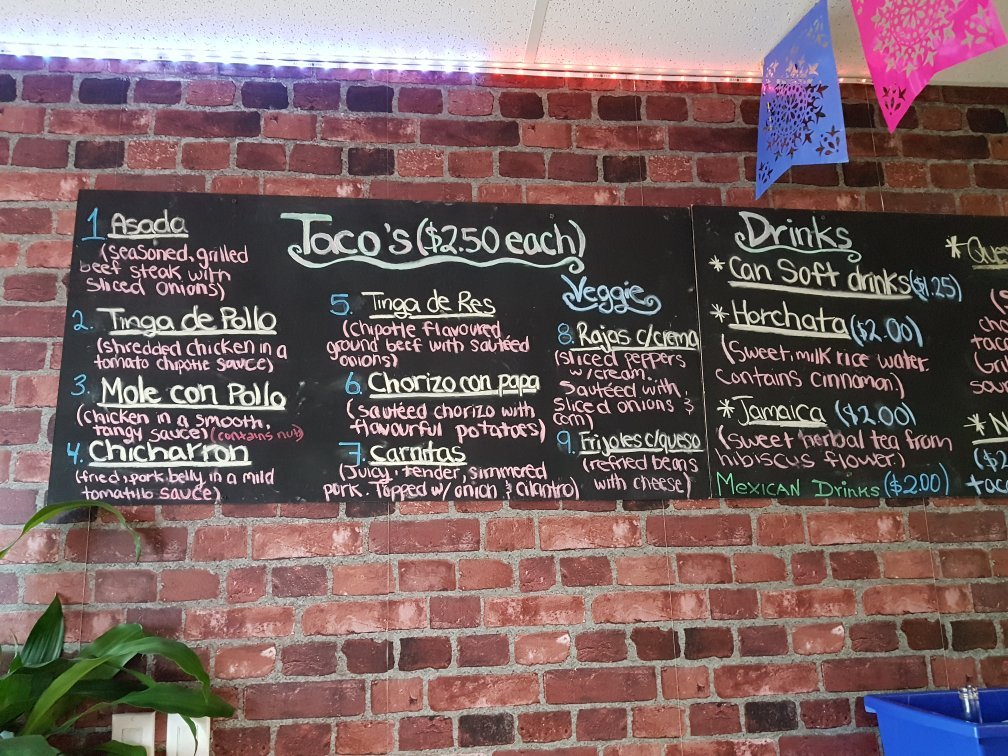 Taco's ($2.50 each)
1 Asada
(seasoned, grilled
beef steak with
sliced onions)
2. Tinga de Pollo
(shredded chicken in a
tomato chipotle sauce)
3. Mole con Pollo
(chicken in a smooth,
tangy sauce) (contains nut)
4. Chicharron
(fried, pork belly in a mild
tomatillo sauce)
5. Tinga de Res
(chipotle flavoured
ground beef with sautéed
onions)
6. Chorizo con papa
(sautéed chorizo with
flavourful potatoes)
7. Carnitas
(Juicy, tender, simmered
pork. Topped w/ onion & cilantro)
Veggie
8. Rajas c/crema
(sliced peppers
w/cream.
Sautéed with,
sliced onions &
corn)
9. Frijoles c/queso
(refried beans
with cheese)
Drinks
* Can Soft drinks ($1.25)
* Horchata ($2.00)
(Sweet, milk rice water.
contains cinnamon)
* Jamaica ($2.00)
(Sweet herbal tea from
hibiscus flower)
Mexican Drinks ($2.00)
* Que
taco
* N
($2
taco